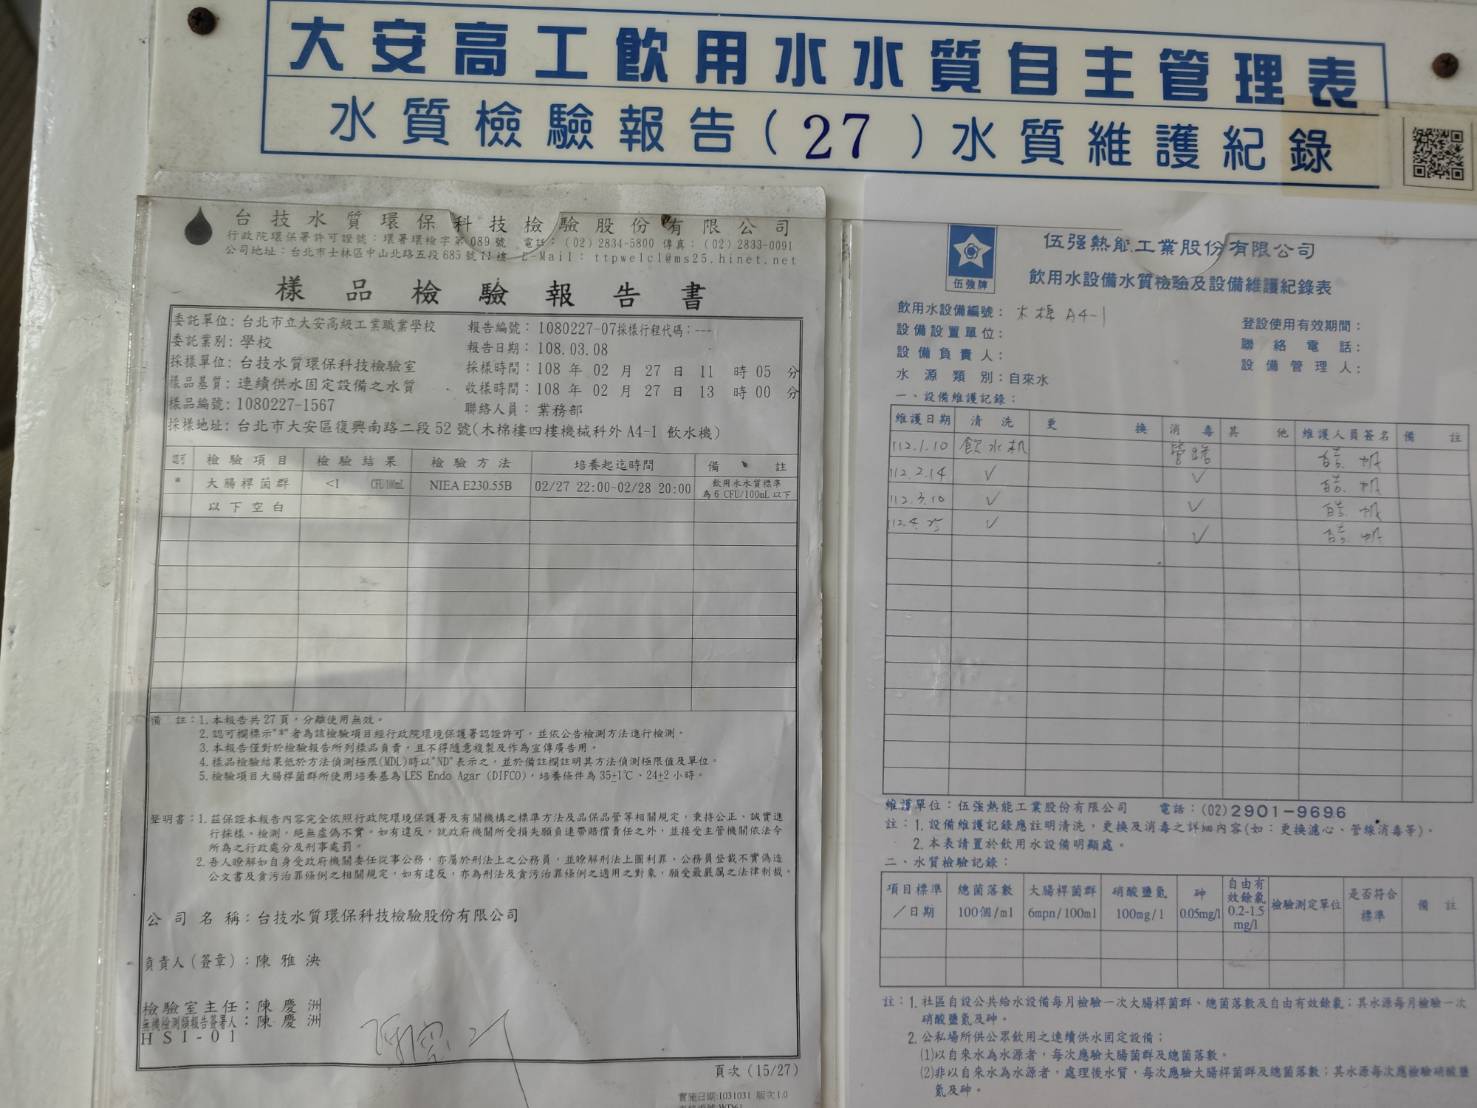 大安高工飲用水水質自主管理表
水質檢驗報告(27)水質維護紀錄
台技水質環保科技檢驗股份有限公司
行政院環保署許可證號:環署環檢字第089號 電話:(02)2834-5800 傳真:(02)2833-0091
公司地址:台北市士林區中山北路五段685號11樓 E-Mail:ttpwelcl@ms25.hinet.net
樣品檢驗報告書
委託單位:台北市立大安高級工業職業學校 報告編號:1080227-07採樣行程代碼:---
委託業別:學校 報告日期:108.03.08
採樣單位:台技水質環保科技檢驗室 採樣時間:108 年 02 月 27 日 11 時 05 分
樣品基質:連續供水固定設備之水質 收樣時間:108 年 02 月 27 日 13 時 00 分
樣品編號:1080227-1567 聯絡人員:業務部
採樣地址:台北市大安區復興南路二段52號(木棉樓四樓機械科外A4-1 飲水機)
認可 檢驗項目 檢驗結果 檢驗方法 培養起迄時間 備註
* 大腸桿菌群 <1 CFU/100mL NIEA E230.55B 02/27 22:00-02/28 20:00 飲用水水質標準為6 CFU/100mL以下
以下空白
備 註:1.本報告共27頁,分離使用無效。
2.認可欄標示"*"者為該檢驗項目經行政院環境保護署認證許可,並依公告檢測方法進行檢測。
3.本報告僅對於檢驗報告所列樣品負責,且不得隨意複製及作為宣傳廣告用。
4.樣品檢驗結果低於方法偵測極限(MDL)時以"ND"表示之,並於備註欄註明其方法偵測極限值及單位。
5.檢驗項目大腸桿菌群所使用培養基為LES Endo Agar (DIFCO),培養條件為35±1℃、24±2小時。
聲明書:1.茲保證本報告內容完全依照行政院環境保護署及有關機構之標準方法及品保品管等相關規定,秉持公正、誠實進
行採樣、檢測,絕無虛偽不實。如有違反,就政府機關所受損失願負連帶賠償責任之外,並接受主管機關依法令
所為之行政處分及刑事處罰。
2.吾人瞭解如自身受政府機關委任從事公務,亦屬於刑法上之公務員,並瞭解刑法上圖利罪、公務員登載不實偽造
公文書及貪污治罪條例之相關規定,如有違反,亦為刑法及貪污治罪條例之適用之對象,願受最嚴厲之法律制裁。
公司名稱:台技水質環保科技檢驗股份有限公司
負責人(簽章):陳雅泱
檢驗室主任:陳慶洲
無機檢測類報告簽署人:陳慶洲
HSI-01
頁次(15/27)
實施日期:1031031 版次1.0
伍強牌
伍强熱能工業股份有限公司
飲用水設備水質檢驗及設備維護紀錄表
飲用水設備編號:木棉 A4-1
登設使用有效期間:
設備設置單位:
聯絡電話:
設備負責人:
設備管理人:
水源類別:自來水
一、設備維護記錄:
維護日期 清洗 更換 消毒 其他 維護人員簽名 備註
112.1.10 飲水机 管路
112.2.14 ✓ ✓
112.3.10 ✓ ✓
112.4.25 ✓ ✓
維護單位:伍強熱能工業股份有限公司 電話:(02)2901-9696
註:1.設備維護記錄應註明清洗,更換及消毒之詳細內容(如:更換濾心、管線消毒等)。
2.本表請置於飲用水設備明顯處。
二、水質檢驗記錄:
項目標準/日期 總菌落數100個/ml 大腸桿菌群6mpn/100ml 硝酸鹽氮100mg/l 砷0.05mg/l 自由有效餘氯0.2-1.5mg/l 檢驗測定單位 是否符合標準 備註
註:1.社區自設公共給水設備每月檢驗一次大腸桿菌群、總菌落數及自由有效餘氯;其水源每月檢驗一次
硝酸鹽氮及砷。
2.公私場所供公眾飲用之連續供水固定設備:
(1)以自來水為水源者,每次應驗大腸菌群及總菌落數。
(2)非以自來水為水源者,處理後水質,每次應驗大腸桿菌群及總菌落數;其水源每次應檢驗硝酸鹽
氮及砷。